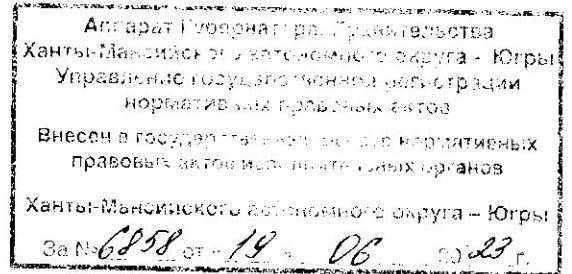 Аппарат Губернатора, Правительства
Ханты-Мансийского автономного округа - Югры
Управление государственной регистрации
нормативных правовых актов
Внесен в государственный нормативных
правовых актов исполнительных органов
Ханты-Мансийского автономного округа – Югры
За № 6858 от "19" 06 2023 г.